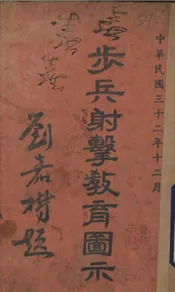 中華民國三十二年十二月
步兵射擊教育圖示
劉嘉樹題